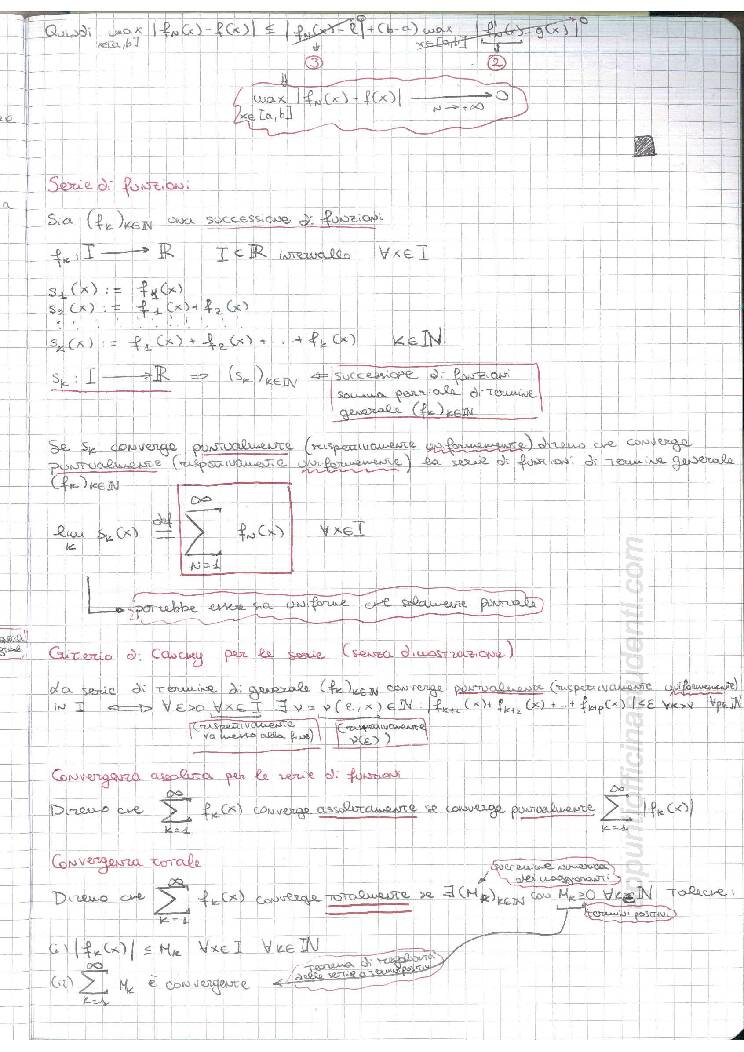 Quindi max |fₙ(x) - f(x)| ≤ |fₙ(x) - ℓ| + (b-a) max |f'ₙ(x) - g(x)|
x∈[a,b] x∈[a,b]
0 0
③ ②
max |fₙ(x) - f(x)| → 0
x∈[a,b] N→+∞
Serie di funzioni
Sia (fₖ)ₖ∈ℕ una successione di funzioni
fₖ: I → ℝ I ⊂ ℝ intervallo ∀x∈I
s₁(x) := f₁(x)
s₂(x) := f₁(x) + f₂(x)
sₖ(x) := f₁(x) + f₂(x) + .. + fₖ(x) k∈ℕ
sₖ: I → ℝ ⇒ (sₖ)ₖ∈ℕ ⇐ successione di funzioni
somma parziale di termine
generale (fₖ)ₖ∈ℕ
Se sₖ converge puntualmente (rispettivamente uniformemente) diremo che converge
puntualmente (rispettivamente uniformemente) la serie di funzioni di termine generale
(fₖ)ₖ∈ℕ
lim sₖ(x) def= ∞∑N=1 fₙ(x) ∀x∈I
k
potrebbe essere sia uniforme che solamente puntuale
Criterio di Cauchy per le serie (senza dimostrazione)
La serie di termine di generale (fₖ)ₖ∈ℕ converge puntualmente (rispettivamente uniformemente)
in I ⟺ ∀ε>0 ∀x∈I ∃ν=ν(ε,x)∈ℕ: |fₖ₊₁(x) + fₖ₊₂(x) + .. + fₖ₊ₚ(x)| ≤ ε ∀k>ν ∀p∈ℕ
(rispettivamente
va messo alla fine)
(rispettivamente
ν(ε))
Convergenza assoluta per le serie di funzioni
Diremo che ∞∑k=1 fₖ(x) converge assolutamente se converge puntualmente ∞∑k=1 |fₖ(x)|
Convergenza totale
successione numerica
dei maggioranti
Diremo che ∞∑k=1 fₖ(x) converge totalmente se ∃(Mₖ)ₖ∈ℕ con Mₖ≥0 ∀k∈ℕ tale che:
termini positivi
(i) |fₖ(x)| ≤ Mₖ ∀x∈I ∀k∈ℕ
(ii) ∞∑k=1 Mₖ è convergente
teorema di regolarità
delle serie a termini positivi
appuntiofficinastudenti.com